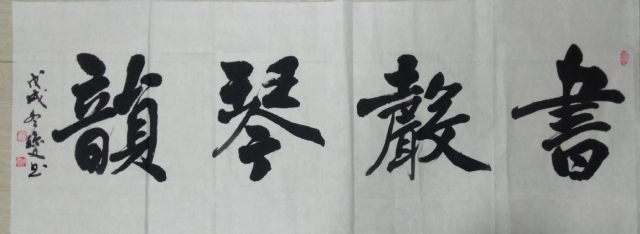 書聲琴韻
戊戌冬